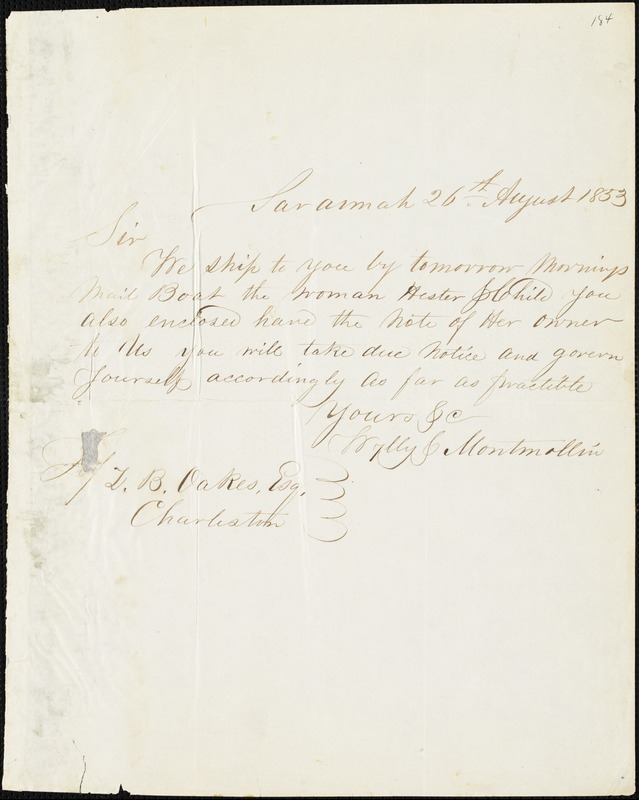 184
Savannah 26th August 1853
Sir
We ship to you by tomorrow Mornings
Mail Boat the woman Hester & Child you
also enclosed have the Note of Her owner
to Us you will take due Notice and govern
yourself accordingly as far as practible
Yours &c
Wylly & Montmollin
To
Z. B. Oakes, Esq.
Charleston